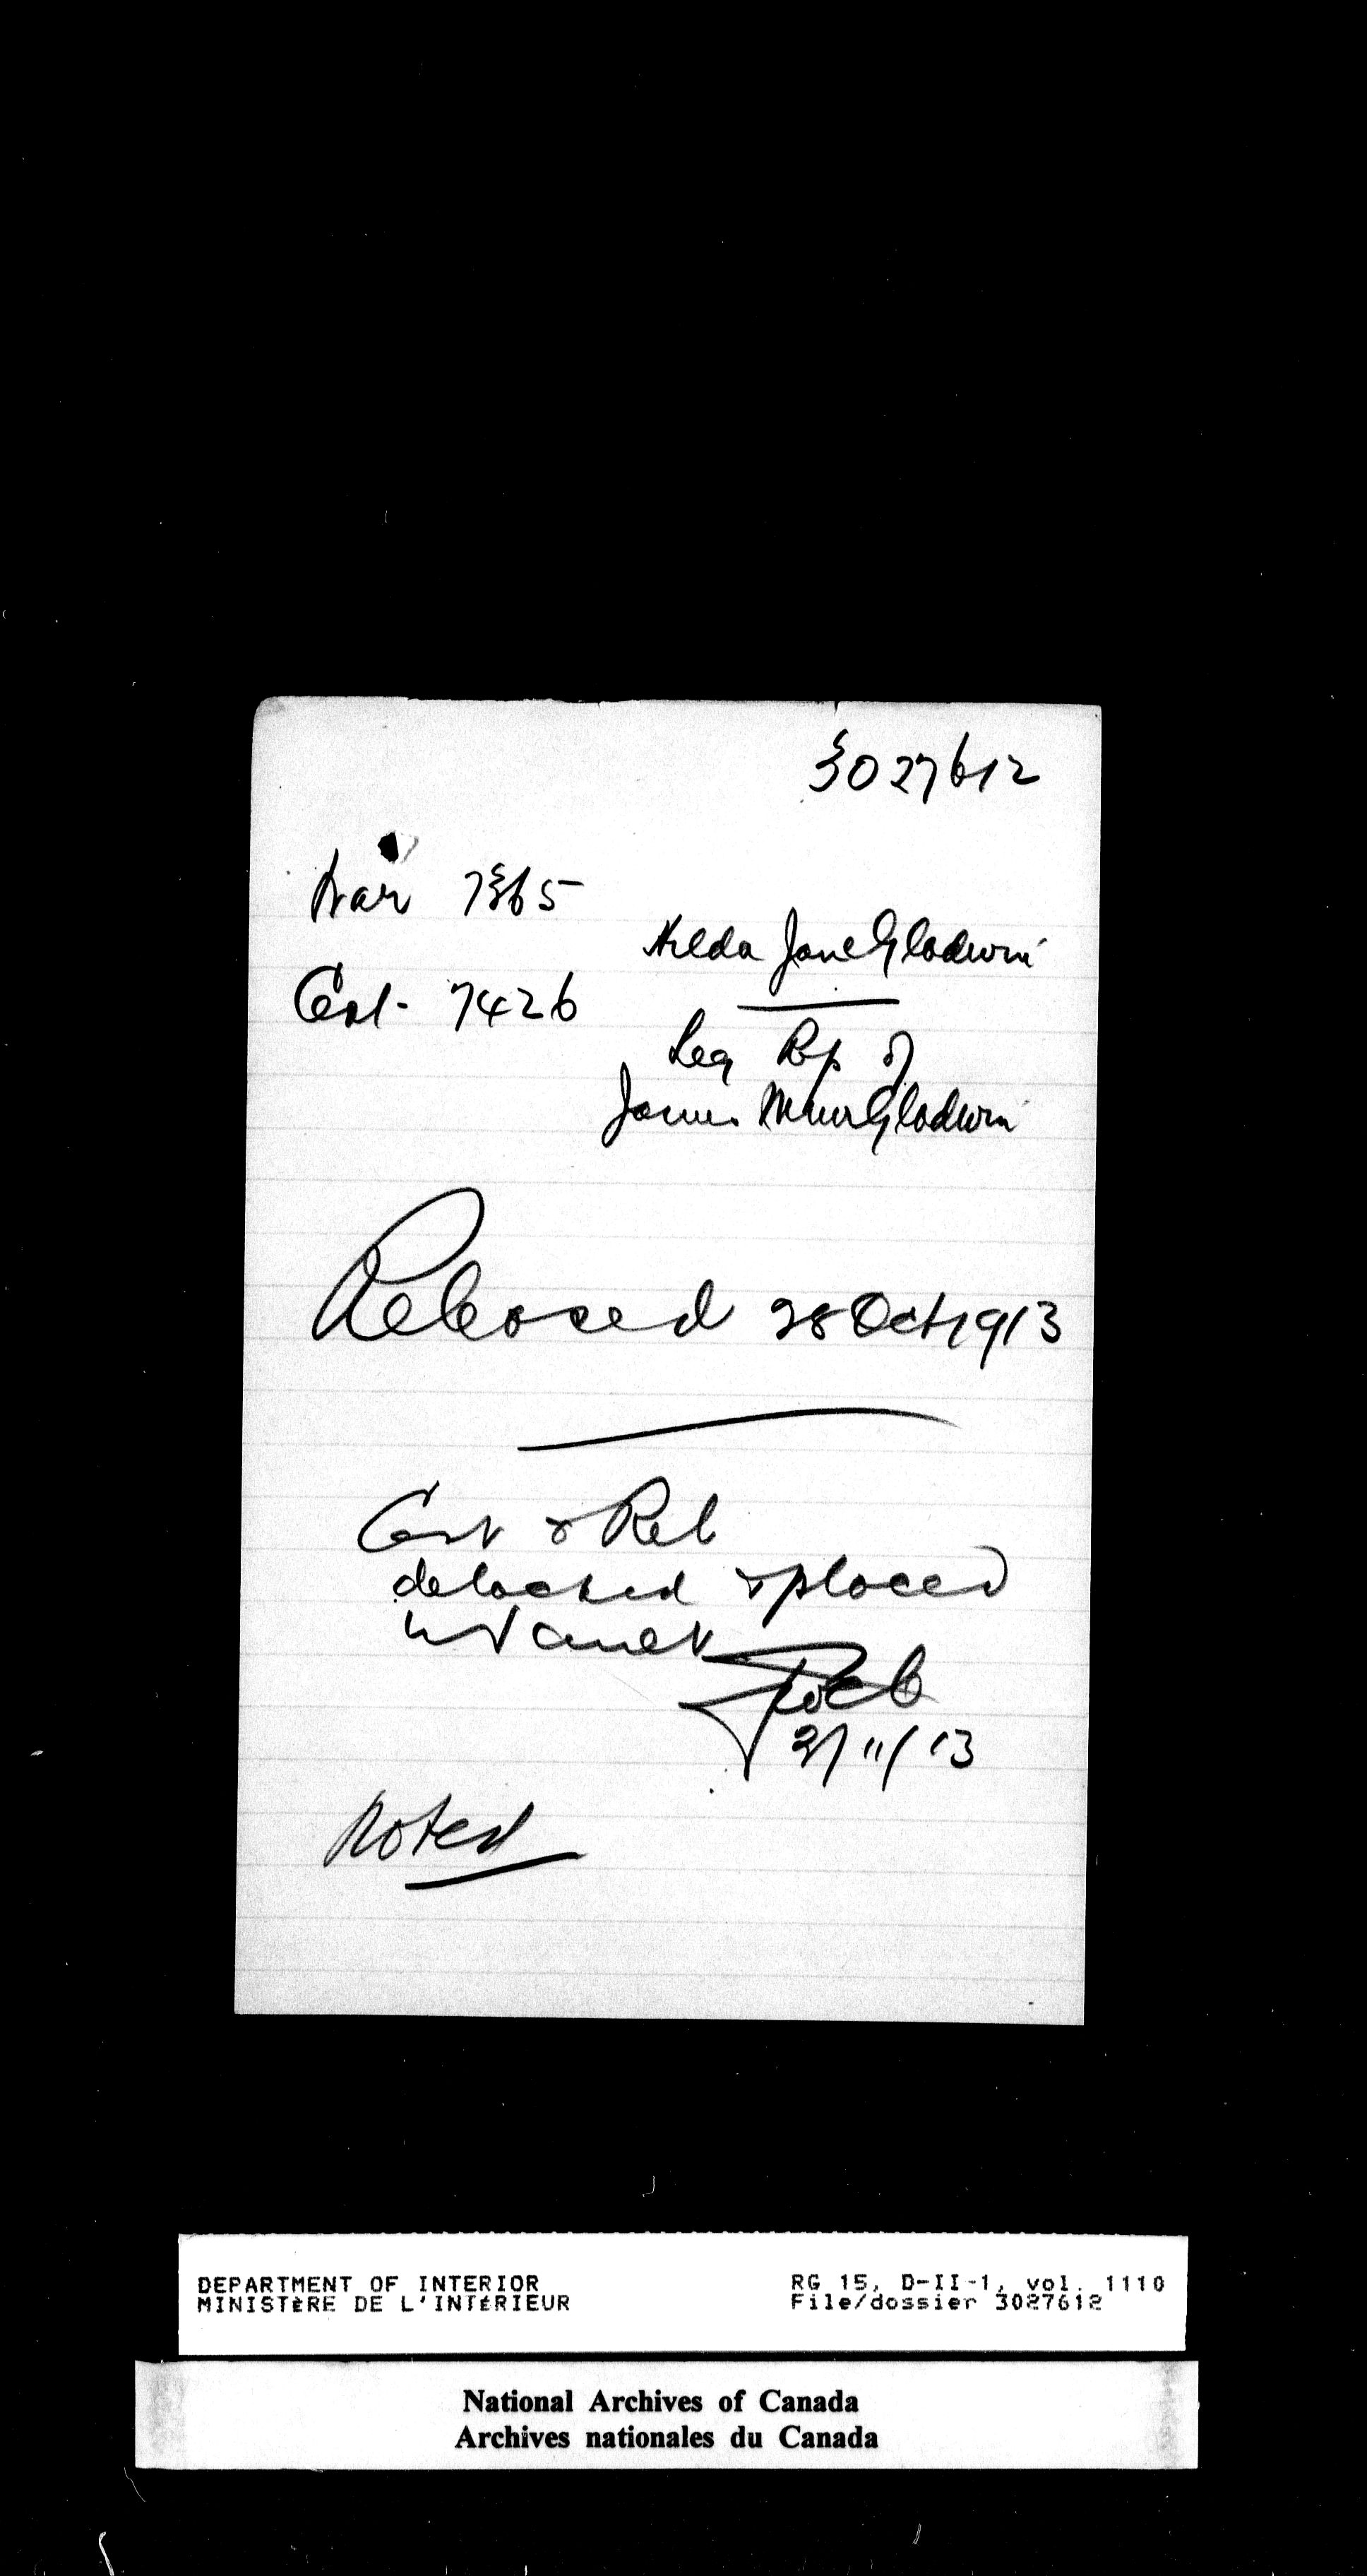 3027612
War 7365
Hilda Jane Gladwin
Cert. 7426
Leg Rep of
James Muir Gladwin
Released 28 Oct 1913
Cert & Rel
detached & placed
in
/11/13
Noted
DEPARTMENT OF INTERIOR
MINISTÈRE DE L'INTÉRIEUR
RG 15, D-II-1, vol. 1110
File/dossier 3027612
National Archives of Canada
Archives nationales du Canada